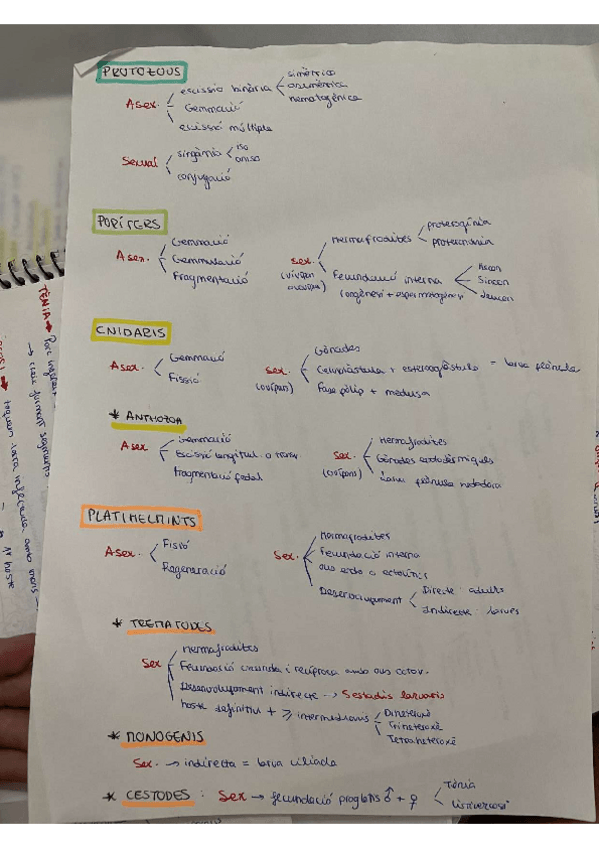 PROTOZOUS
Asex. escissió binària simètrica
asimètrica
nematogènica
Gemmació
escissió múltiple
Sexual singàmia iso
aniso
conjugació
PORÍFERS
Asex. Gemmació
Gemmulació
Fragmentació
sex. Hermafrodites proteroginia
proterandria
(vivípars
ovovípars) Fecundació interna Ascon
Sincon
Leucon
(ovogènesi + espermatogènesi)
CNIDARIS
Asex. Gemmació
Fissió
sex. Gònades
(ovípars) Celoblàstula + estereogàstrula = larva plànula
Fase pòlip + medusa
* ANTHOZOA
Asex Gemmació
Escissió longitud. o transv
fragmentació pedal
Sex. Hermafrodites
(ovípars) Gònades endodèrmiques
Larva plànula nedadora
PLATIHELMINTS
Asex. Fissió
Regeneració
Sex. Hermafrodites
Fecundació interna
ous endo o ectolínics
Desenvolupament Directe: adults
Indirecte: larves
* TREMATODES
Sex Hermafrodites
Fecundació creuada i recíproca amb ous
Desenvolupament indirecte → 5 estadis larvaris
hoste definitiu + ≥ intermediaris Diheteroxè
Triheteroxè
Tetraheteroxè
* MONOGENIS
Sex. → indirecta = larva ciliada
* CESTODES : Sex → fecundació proglotis ♂ + ♀ Tènia
TÈNIA → Porc ingereix
→ creix formant segments
→ toquem larva infectada amb mans
→ hoste